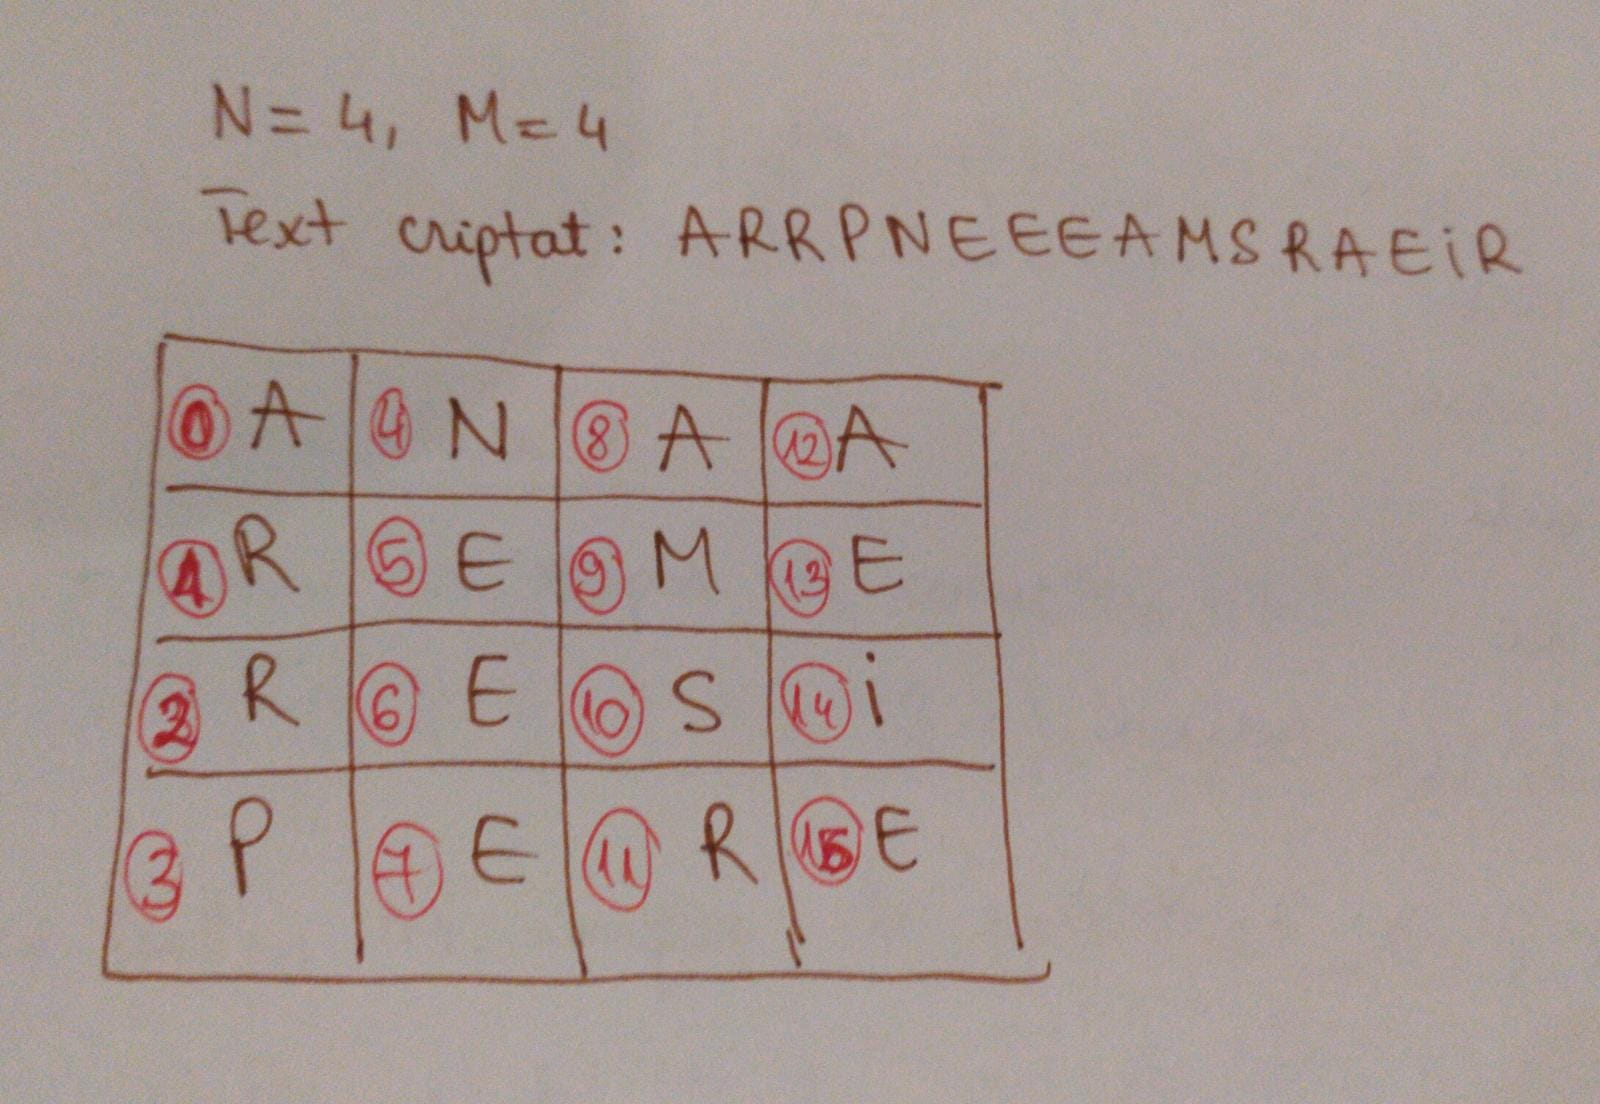 N= 4, M= 4
Text criptat: ARRPNEEEAMSRAEiR
0 A 4 N 8 A 12 A
1 R 5 E 9 M 13 E
2 R 6 E 10 S 14 i
3 P 7 E 11 R 15 E